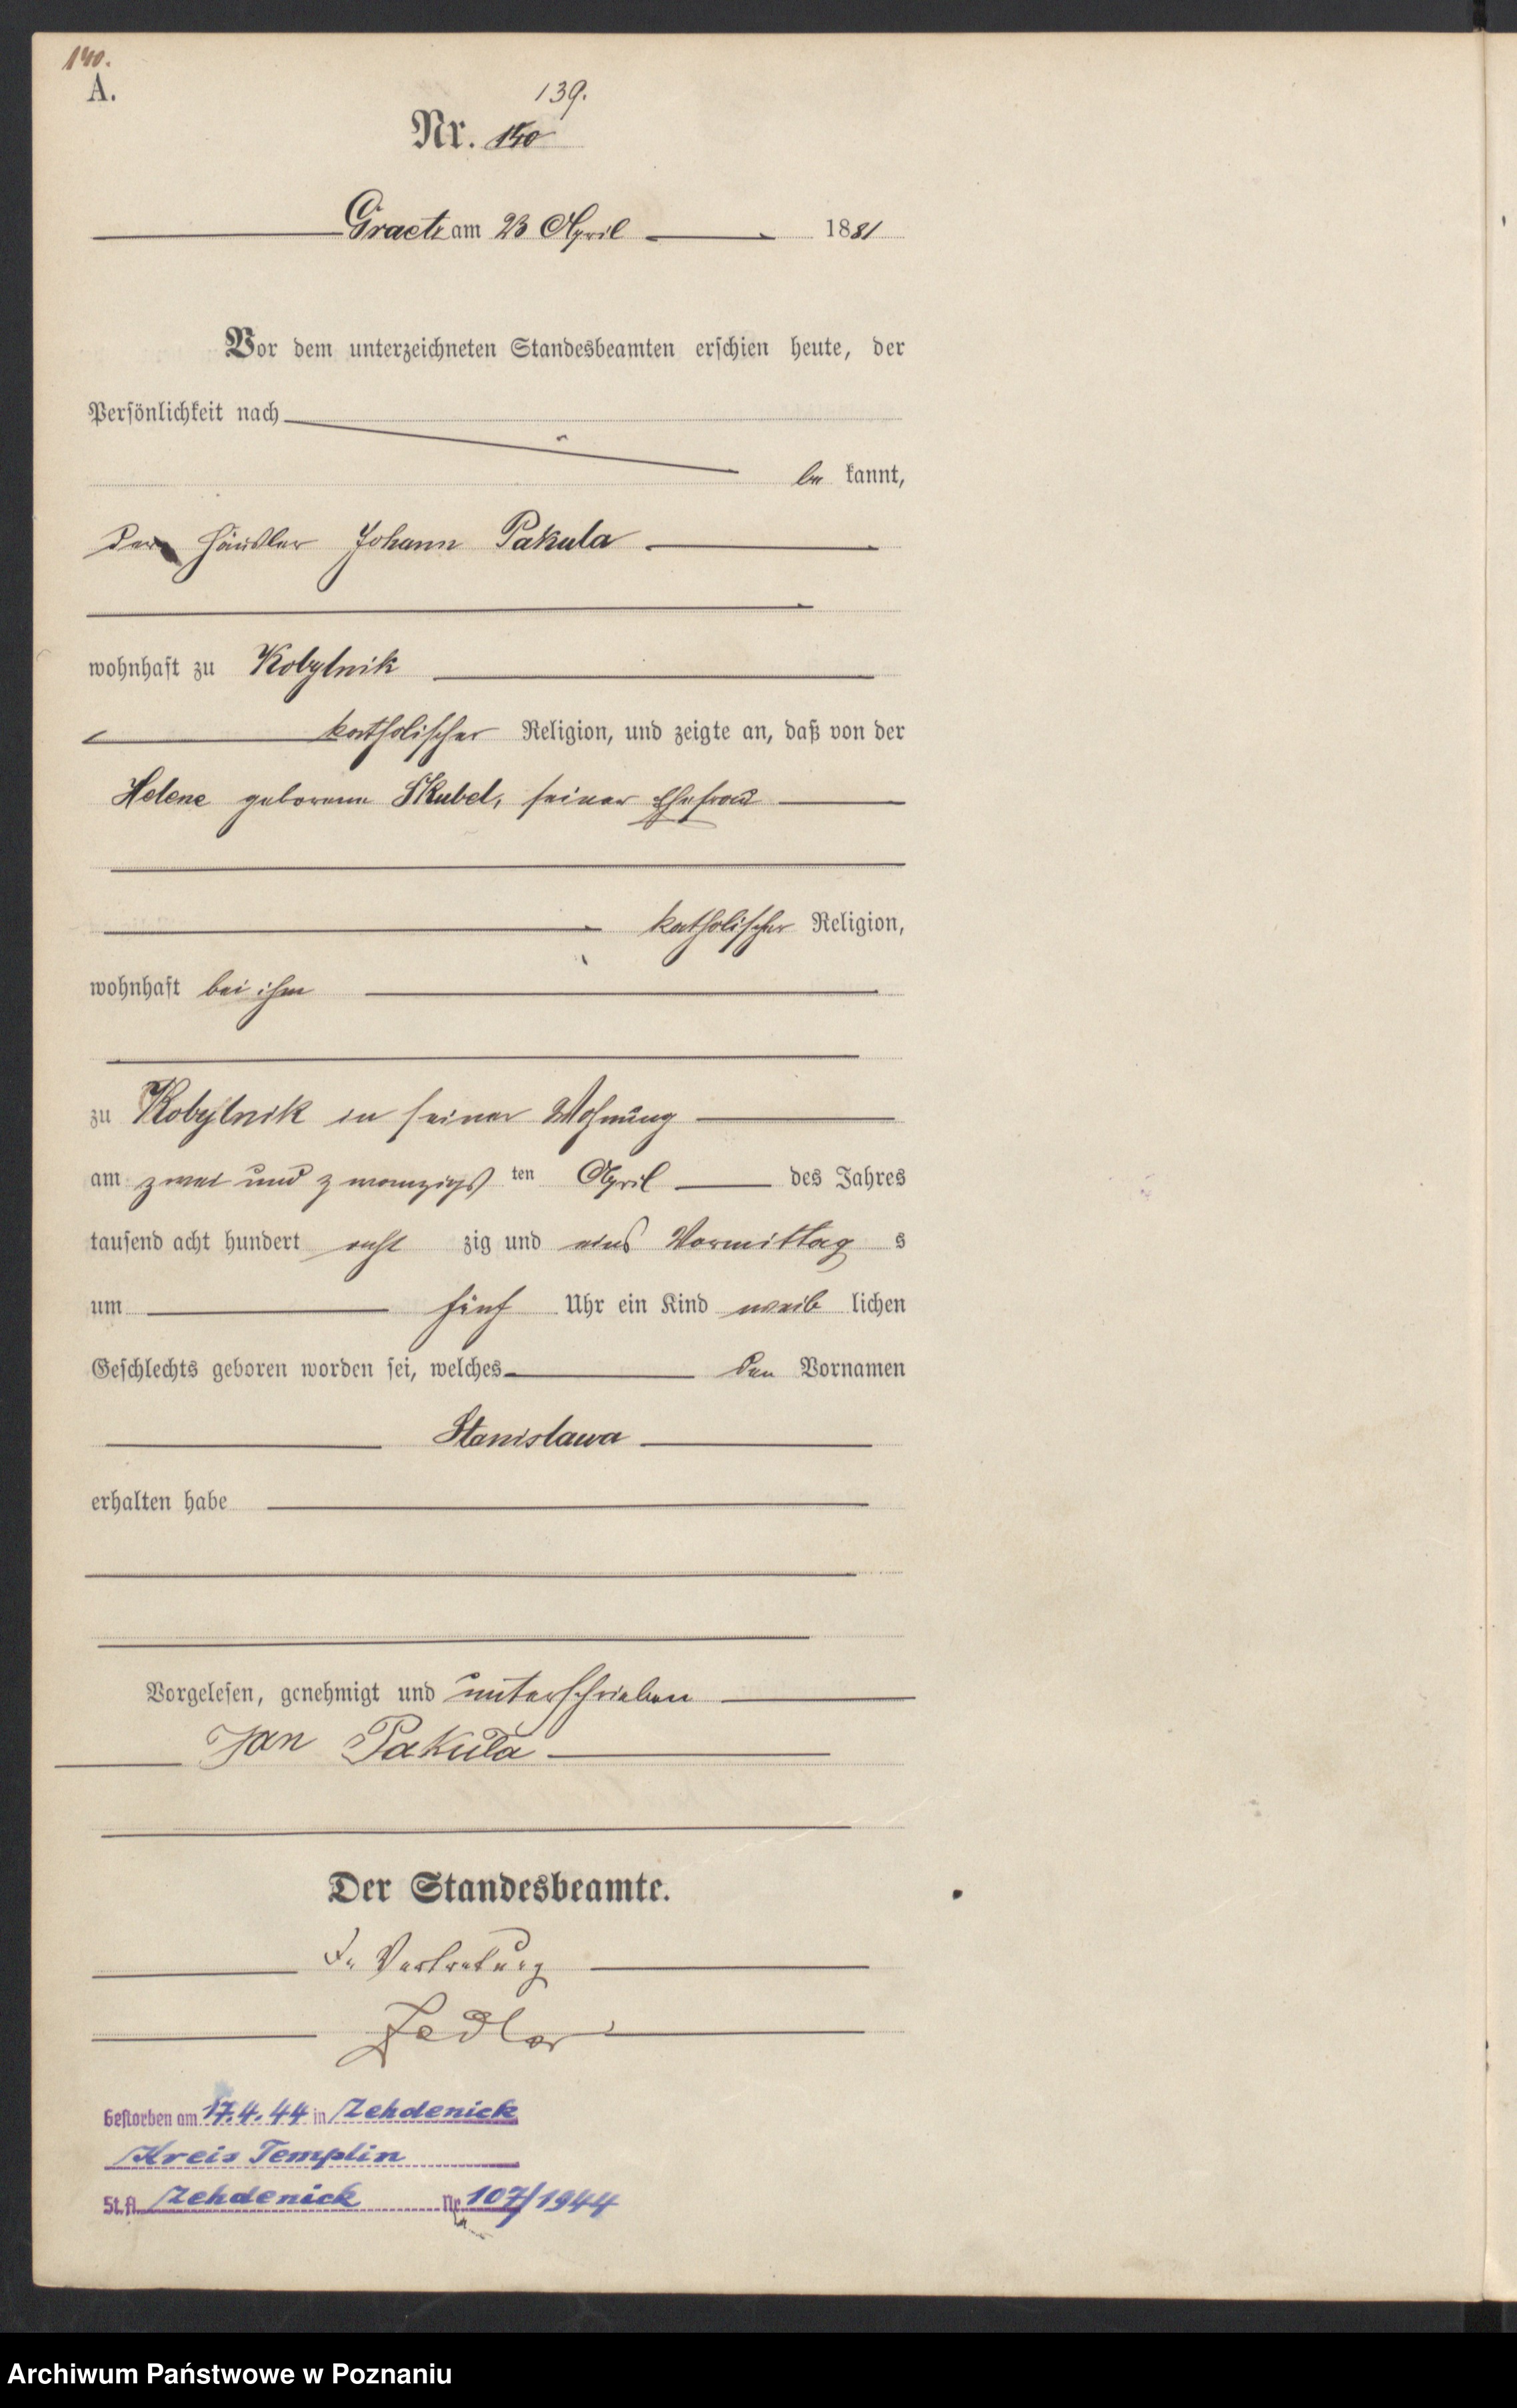 140.
A.
139.
Nr. 140
Graetz am 23 April 1881
Vor dem unterzeichneten Standesbeamten erschien heute, der
Persönlichkeit nach
be kannt,
der Häusler Johann Pakula
wohnhaft zu Kobylnik
katholischer Religion, und zeigte an, daß von der
Helene geborenen Skubel, seiner Ehefrau
katholischer Religion,
wohnhaft bei ihm
zu Kobylnik in seiner Wohnung
am zwei und zwanzigs ten April des Jahres
tausend acht hundert acht zig und eins Vormittag s
um fünf Uhr ein Kind weib lichen
Geschlechts geboren worden sei, welches den Vornamen
Stanislawa
erhalten habe
Vorgelesen, genehmigt und unterschrieben
Jan Pakuła
Der Standesbeamte.
In Vertretung
Zedler
Gestorben am 17.4.44 in Zehdenick
Kreis Templin
St.A. Zehdenick Nr. 107/1944
Archiwum Państwowe w Poznaniu